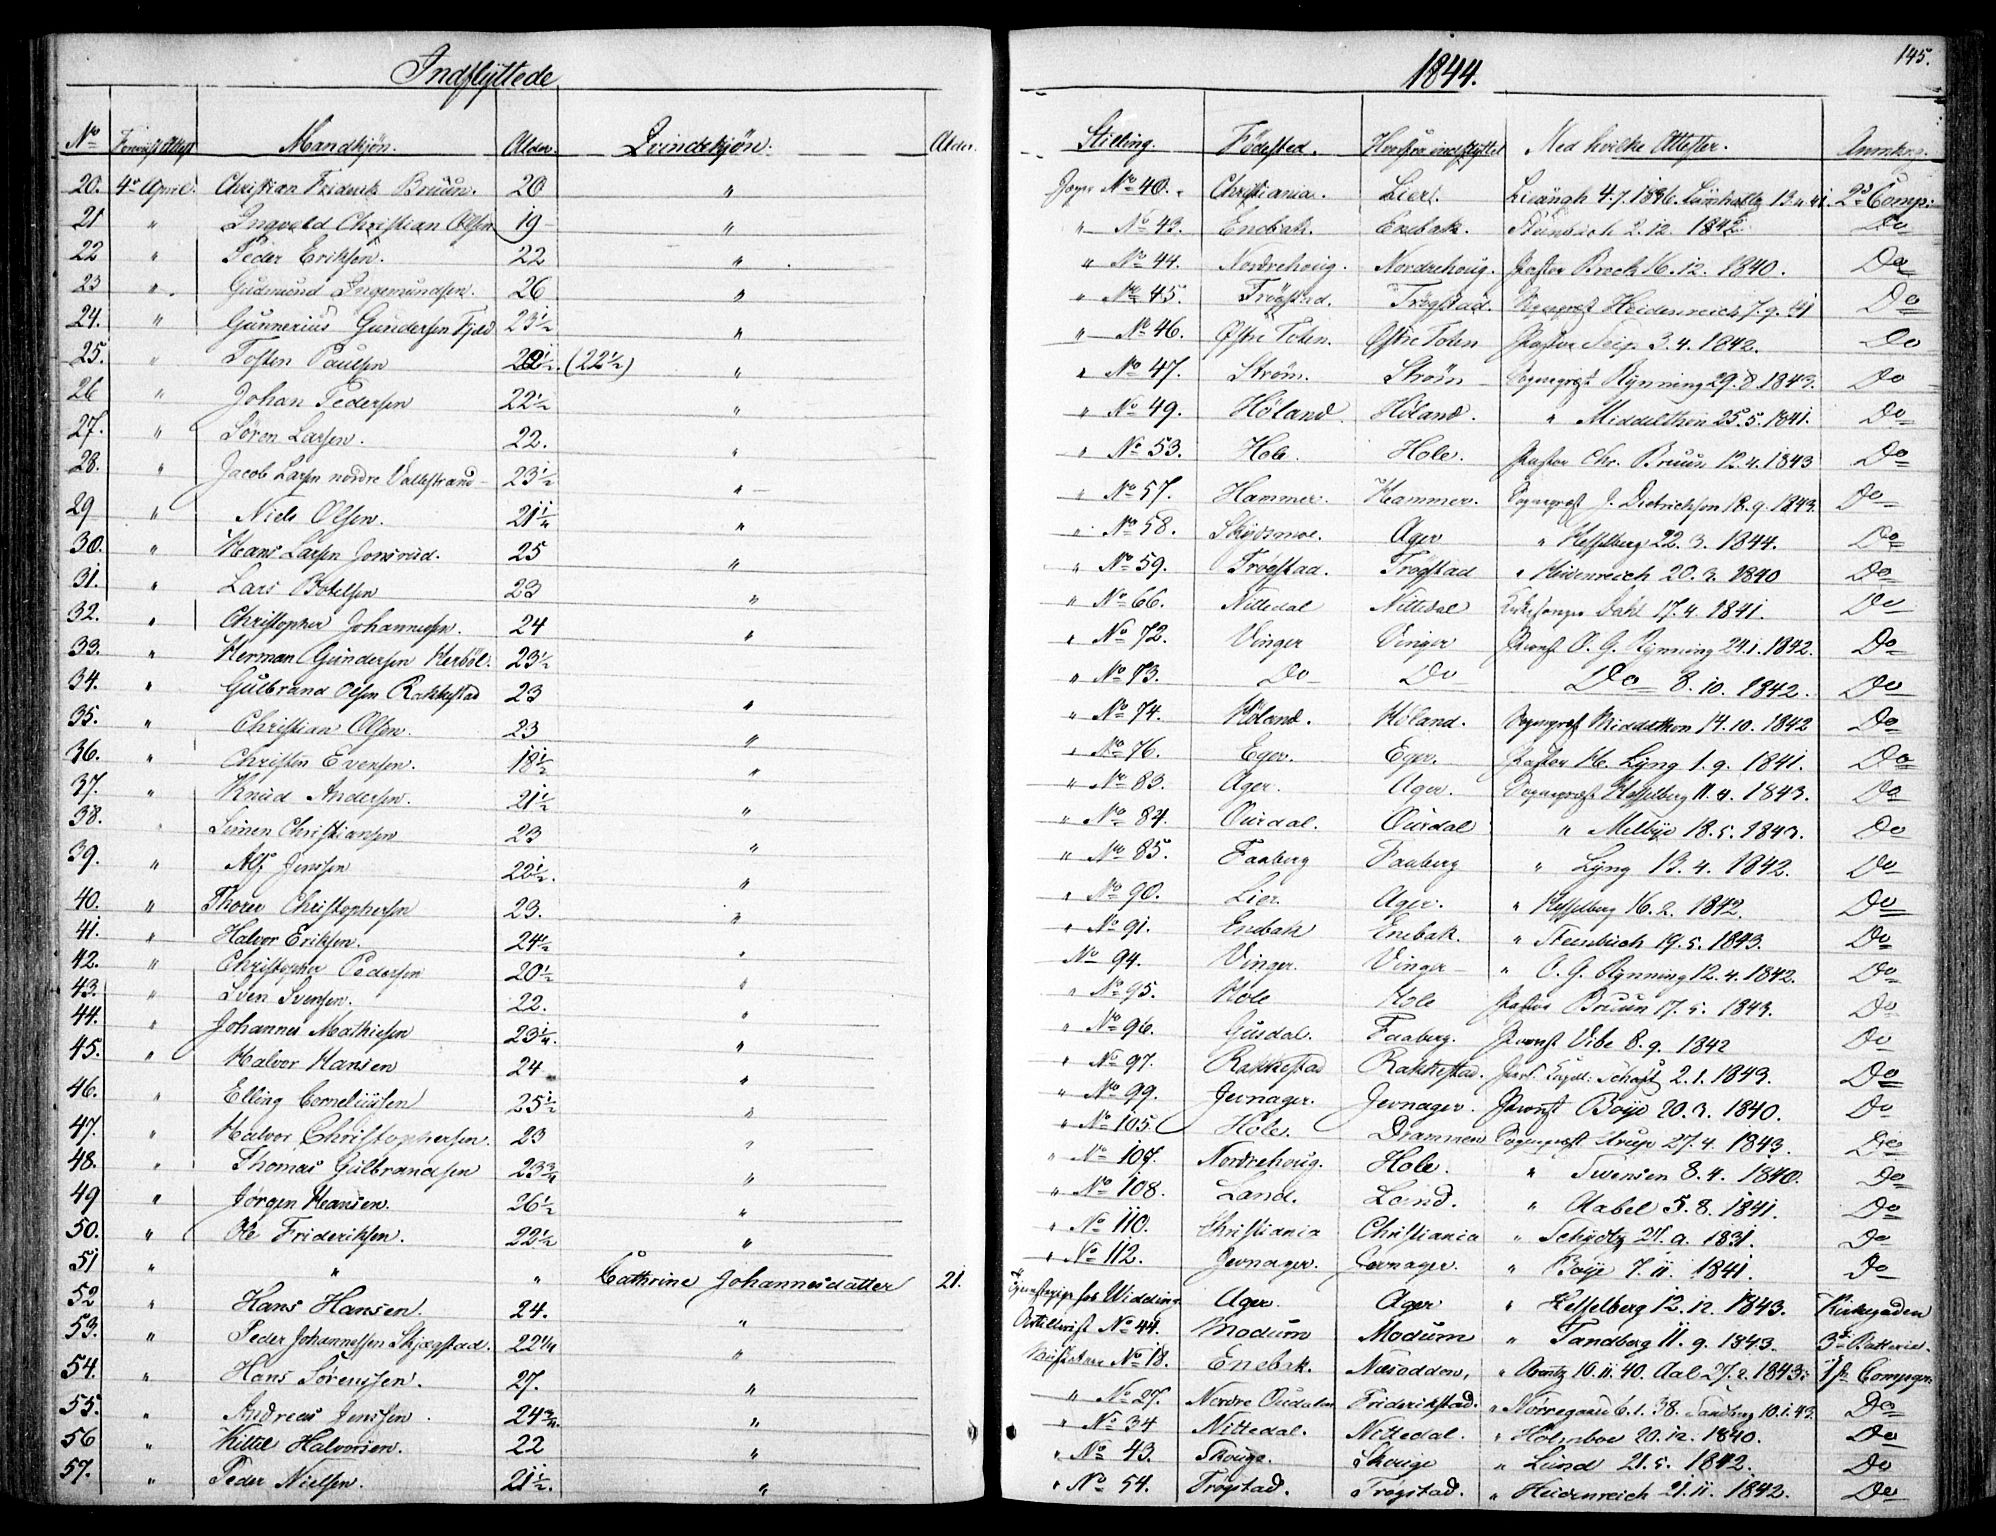 Indflyttede
1844.
145.
No Mandkjøn. Alder. Qvindekjøn. Alder. Stilling. Fødested. Hvorfra indflyttet Med hvilke Attester. Anmærkg.
20. 4de April. Christian Friderik Bruun. 20 " Jæger No 40. Christiania. Lier. 4.7.1836. 2de Comp:
21 " Ingvald Christian Olsen 19 " " No 43. Enebak. Enebak. Steenbuch 2.12. 1842. Do
22 " Peder Eriksen. 22 " " No 44. Nordrehoug. Nordrehoug. Pastor Brock 16.12. 1840. Do
23 " Gudmund Ingemundsen. 26 " " No 45. Trøgstad. Trøgstad. Sognepræst Heidenreich 7.9.41 Do
24. " Gunnerius Gundersen 23½ " " No 46. Østre Toten. Østre Toten Pastor Seip. 3.4. 1842. Do
25. " Tosten Paulsen 22½. (22½) " " No 47. Strøm. Strøm Sognepræst Rynning 29.8.1843. Do
26 " Johan Pedersen 22½ " " No 49. Høland. Høland. " Middelthon 25.5.1841. Do
27. " Søren Larsen. 22. " " No 53. Hole. Hole. Pastor Chr. Bruun 12.4.1843 Do
28. " Jacob Larsen nordre Vallestrand 23½ " " No 57. Hammer. Hammer. Sognepræst J. Dietrichson 18.9.1843. Do
29 " Niels Olsen. 21¼ " " No 58. Skedsmoe. Ager " Hesselberg 22.3. 1844. Do
30. " Hans Larsen Jonsrud. 25 " " No 59. Trøgstad. Trøgstad " Heidenreich 20.3. 1840 Do
31. " Lars Botelsen 23 " " No 66. Nittedal Nittedal Kirkesanger Dahl 17.4.1841. Do
32. " Christopher Johannessen. 24 " " No 72. Vinger Vinger Provst O. G. Rynning 24.1.1842. Do
33. " Herman Gundersen Herbøl. 23½ " No 73. Do Do Do 8.10. 1842. Do
34. " Gulbrand Olsen Rakkestad 23 " " No 74. Høland. Høland. Sognepræst Middelthon 14.10.1842 Do
35. " Christian Olsen. 23 " " No 76. Eger. Eger. Pastor H. Lyng 1.9. 1841. Do
36. " Christen Evensen. 18½ " " No 83. Ager. Ager. Sognepræst Hesselberg 11.4. 1843. Do
37. " Knud Andersen. 21½ " " No 84. Ourdal. Ourdal " Melbye 18.5.1843. Do
38. " Simen Christiansen 23 " " No 85. Faaberg Faaberg " Lyng 13.4. 1842. Do
39. " Alf Jenssen 22½. " " No 90. Lier. Ager. " Hesselberg 16.2. 1842. Do
40. " Thorer Christophersen 23. " " No 91. Enebak Enebak. " Steenbuch 19.5. 1843. Do
41. " Halvor Eriksen. 24½ " No 94. Vinger. Vinger " O. G. Rynning 12.4.1842. Do
42. " Christopher Pedersen 20½ " " No 95. Hole Hole Pastor Bruun 17.5. 1843. Do
43. " Sven Svensen. 22. " " No 96. Gusdal. Faaberg. Provst Vibe 8.9. 1842 Do
44. " Johannes Mathiesen 23¼. " " No 97. Rakkestad Rakkestad. 2.1.1843. Do
45. " Halvor Hansen 24 " " No 99. Jevnager. Jevnager. Provst Boye 20.3. 1840. Do
46. " Elling Corneliusen 25½ " " No 105. Hole. Drammen Sognepræst Strup 27.4. 1843. Do
47. " Halvor Christophersen. 23 " " No 107. Nordrehoug. Hole. " Swensen 8.4. 1840. Do
48. " Thomas Gulbrandsen 23¾ " " No 108. Land. Land. " Aabel 5.8. 1841. Do
49 " Jørgen Hansen. 26½ " " No 110. Christiania Christiania " Schydtz 1831. Do
50. " Ole Frideriksen. 22½ " " No 112. Jevnager. Jevnager. " Boye 7.11. 1841. Do
51 " " " Cathrine Johannesdatter 21. Tjenestepige hos Widding Ager. Ager " Hesselberg 12.12. 1843. Kirkegaden
52 " Hans Hansen. 24. " Artillerist No 44. Modum Modum " Tandberg 11.9.1843. 3de Batterie.
53. " Peder Johannessen Skjægstad. 22¼ " No 18. Enebak. Næsodden, " Arentz 10.11.40. Aal 27.2.1843. 1ste Compgn:
54. " Hans Sørenssen. 27. " " No 27. Nordre Ourdalen Friderikstad. " Nørregaard 6.1.38. Tandberg 10.1.43. Do
55. " Andreas Jenssen. 24¾. " " No 34 Nittedal. Nittedal. " Holmboe 20.12. 1840. Do
56 " Kittil Halvorsen. 22 " " No 43. Skouge. Skouge " Lund 21.5. 1842. Do
57. " Peder Nielsen. 21½. " " No 54. Trøgstad. Trøgstad. " Heidenreich 21.11. 1842. Do